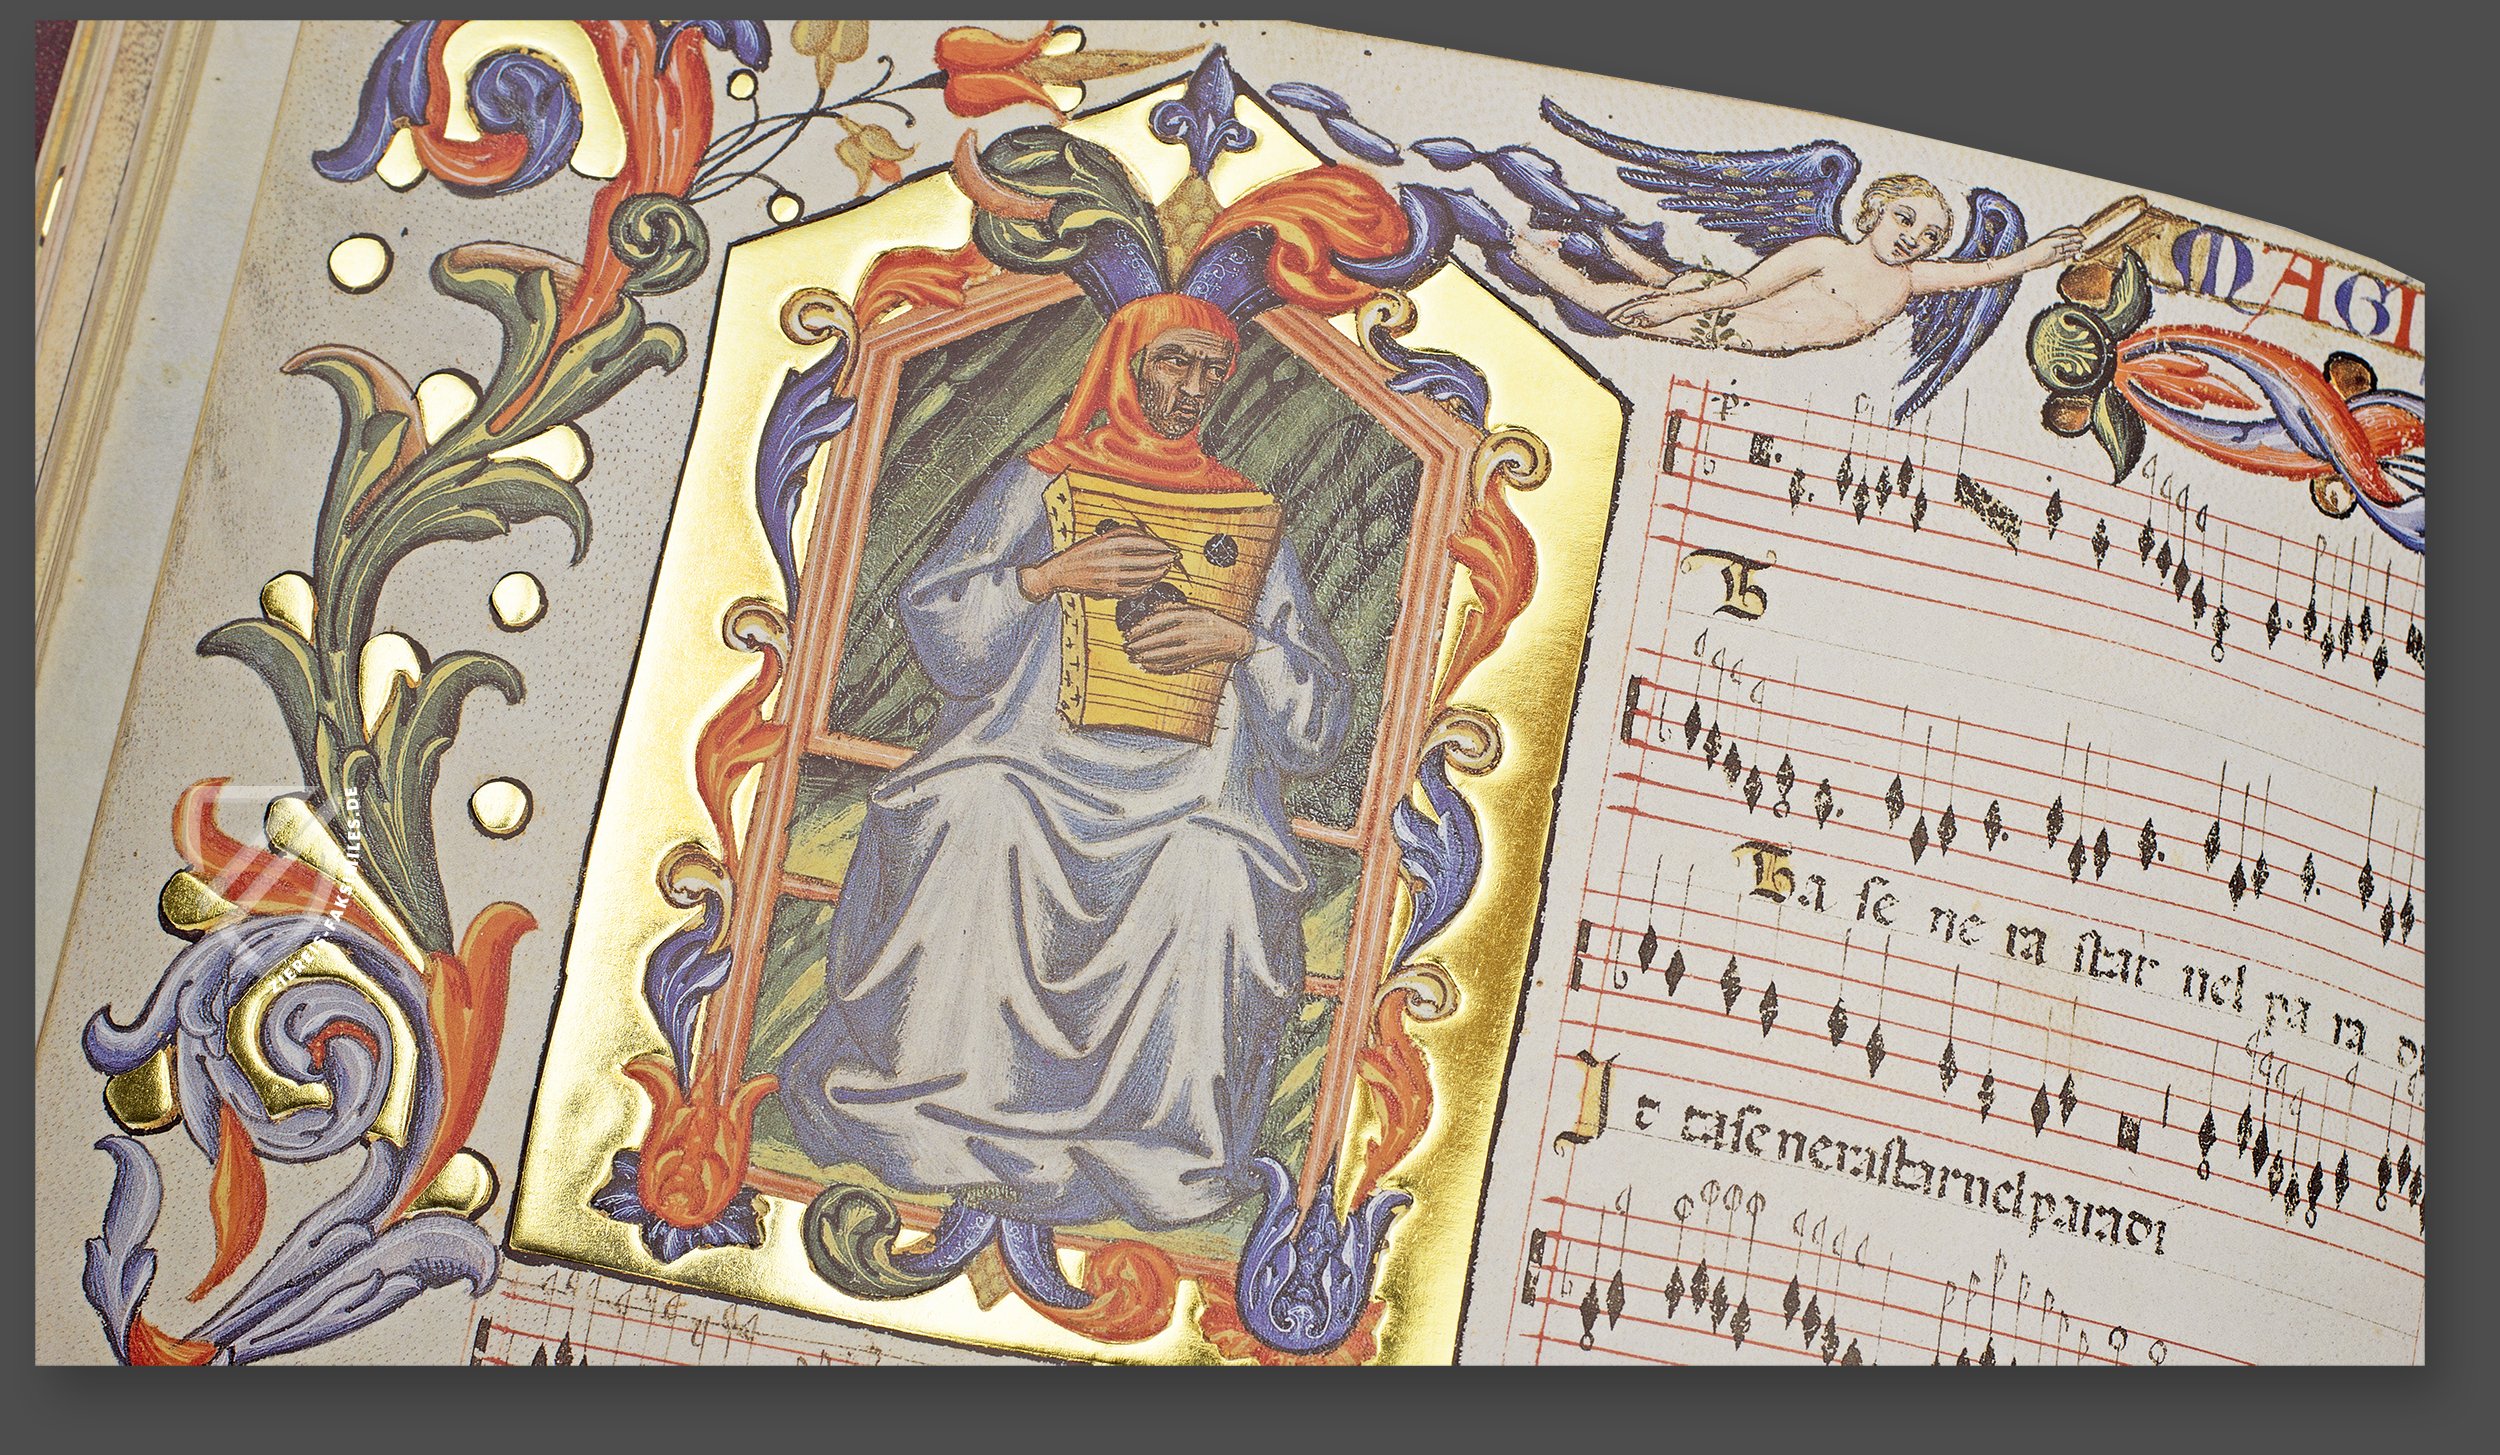 MAGI
.p.
T
Ta se ne ra star nel pa ra di
I t tase nerastarnelparadi
ZIEREIS-FAKSIMILES.DE